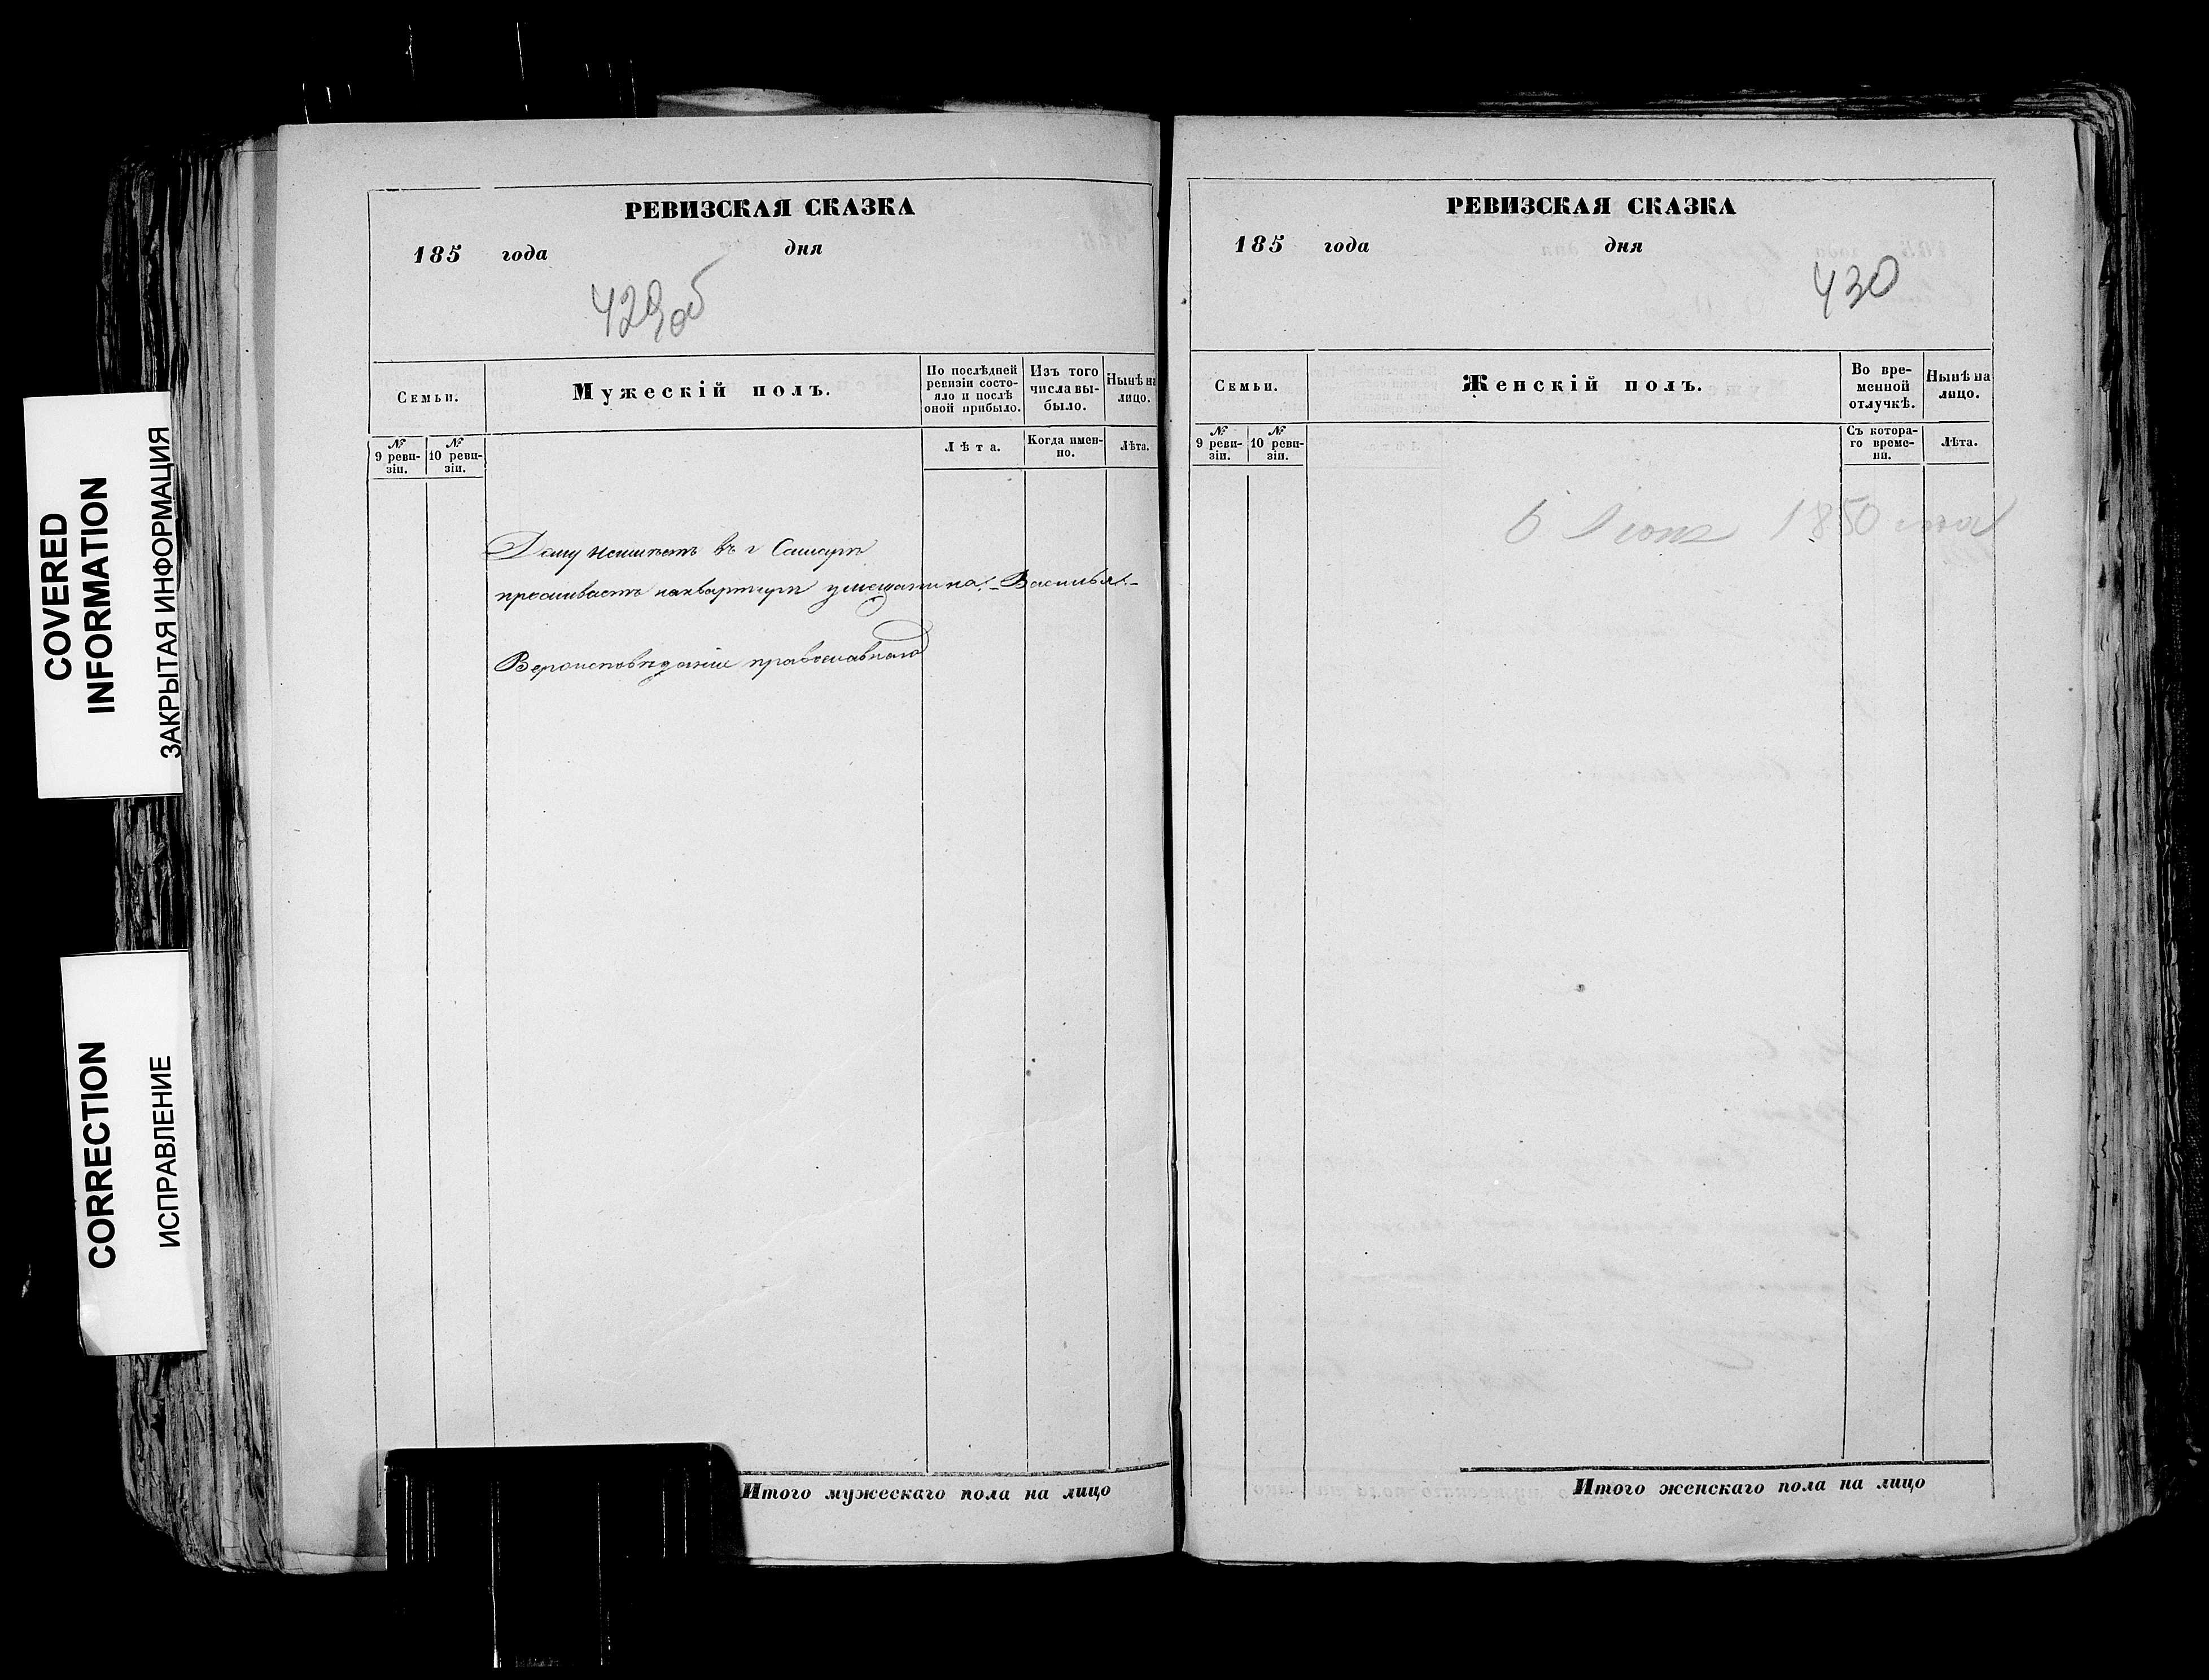 COVERED
INFORMATION
ЗАКРЫТАЯ ИНФОРМАЦИЯ
CORRECTION
ИСПРАВЛЕНИЕ
РЕВИЗСКАЯ СКАЗКА
185 года дня
429об
Семьи.
Мужескій полъ.
По послѣдней ревизіи состояло и послѣ оной прибыло.
Изъ того числа выбыло.
Нынѣ на лицо.
№ 9 ревизіи.
№ 10 ревизіи.
Лѣта.
Когда именно.
Лѣта.
Дому неимѣетъ въ г Самарѣ
проживаетъ наквартирѣ умещанина Василья
Вероисповѣданіи православнаго
Итого мужескаго пола на лицо
РЕВИЗСКАЯ СКАЗКА
185 года дня
430
Семьи.
Женскій полъ.
Во временной отлучкѣ.
Нынѣ на лицо.
№ 9 ревизіи.
№ 10 ревизіи.
Съ котораго времени.
Лѣта.
1850 года
Итого женскаго пола на лицо